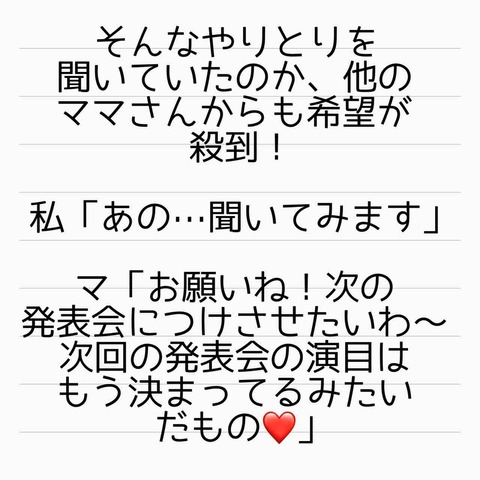 そんなやりとりを
聞いていたのか、他の
ママさんからも希望が
殺到！
私「あの…聞いてみます」
マ「お願いね！次の
発表会につけさせたいわ〜
次回の発表会の演目は
もう決まってるみたい
だもの❤️」